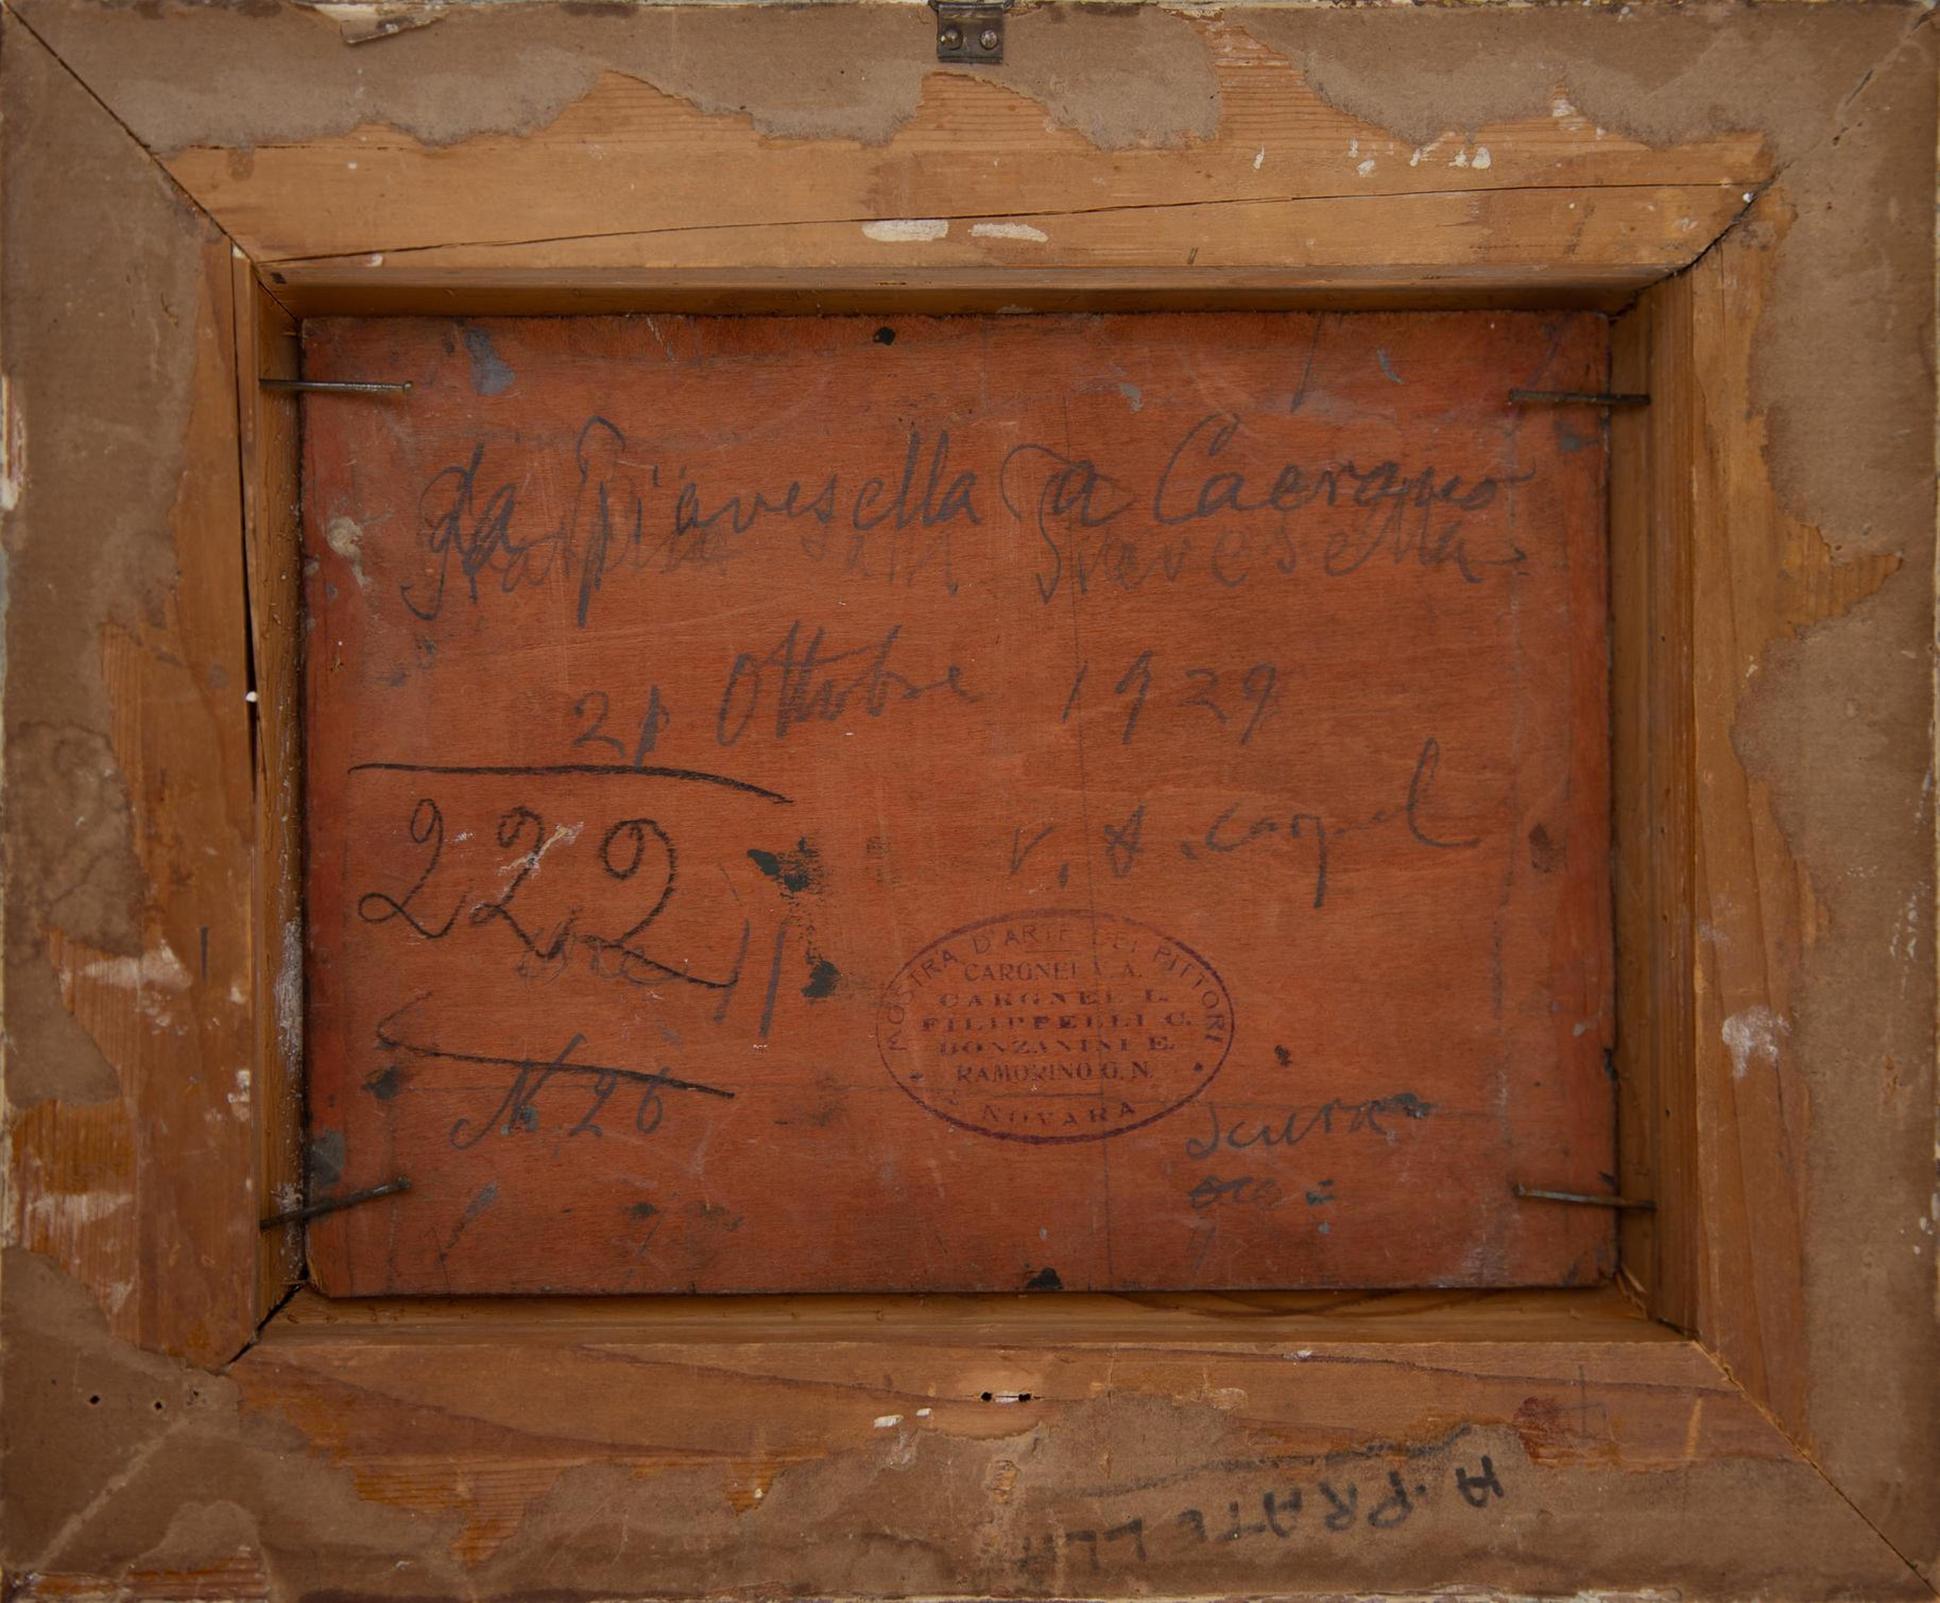 la Piavesella a Caerano
sulla Piavesella
21 Ottobre 1929
222
v. A. Cargnel
ore 11
N. 26
MOSTRA D'ARTE DEI PITTORI
CARGNEL V. A.
CARGNEL L.
FILIPPELLI C.
BONZANINI E.
RAMORINO G. N.
NOVARA
scura
A. PRATELLI